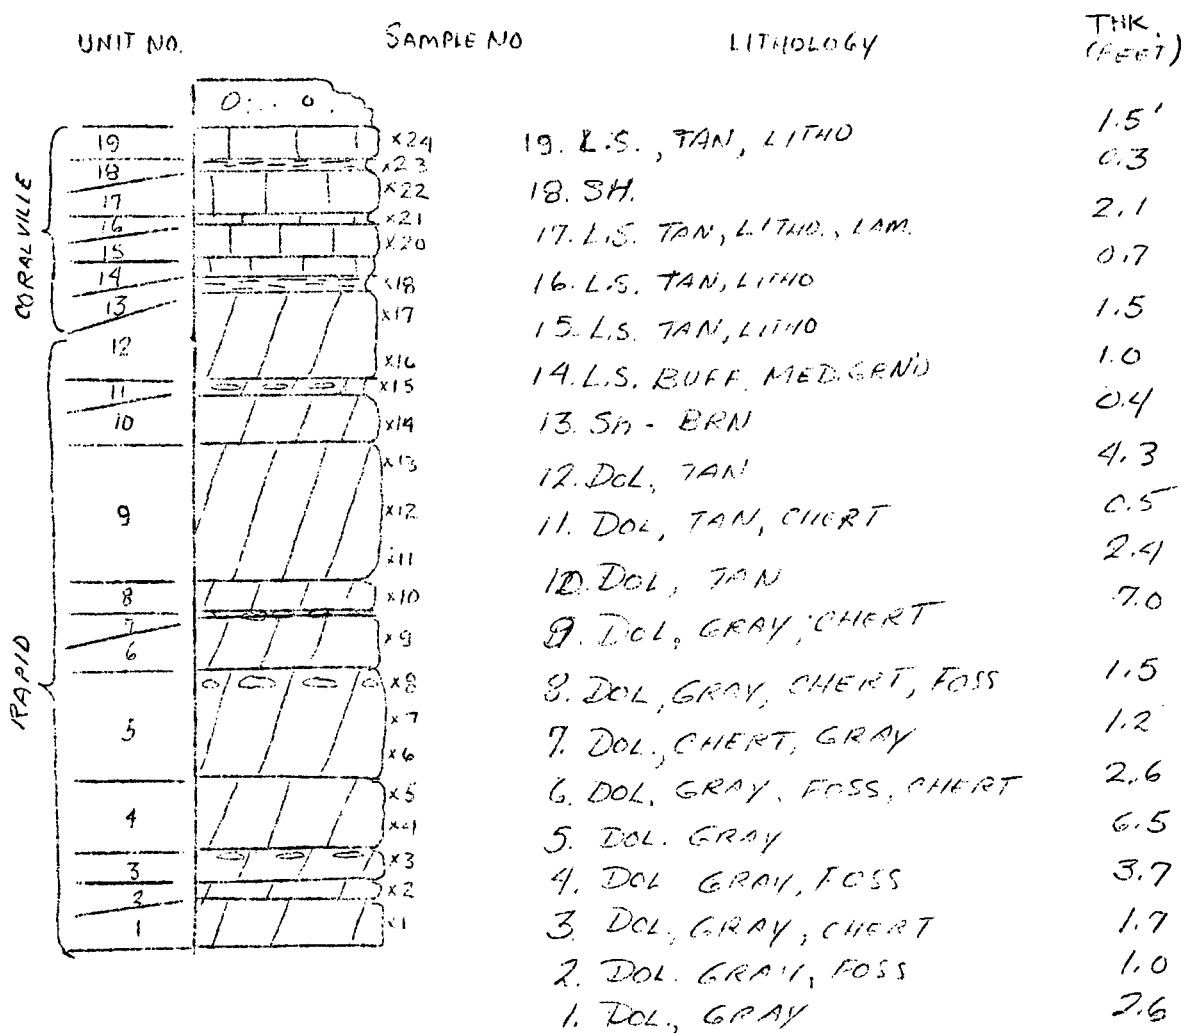 UNIT NO. SAMPLE NO LITHOLOGY THK. (FEET)
CORALVILLE
RAPID
19
18
17
16
15
14
13
12
11
10
9
8
7
6
5
4
3
2
1
x24
x23
x22
x21
x20
x18
x17
x16
x15
x14
x13
x12
x11
x10
x9
x8
x7
x6
x5
x4
x3
x2
x1
19. L.S., TAN, LITHO 1.5'
18. SH. 0.3
17. L.S. TAN, LITHO., LAM. 2.1
16. L.S. TAN, LITHO 0.7
15. L.S. TAN, LITHO 1.5
14. L.S. BUFF, MED. GRN'D 1.0
13. Sh - BRN 0.4
12. DOL, TAN 4.3
11. DOL, TAN, CHERT 0.5
10. DOL, TAN 2.4
9. DOL, GRAY, CHERT 7.0
8. DOL, GRAY, CHERT, FOSS 1.5
7. DOL., CHERT, GRAY 1.2
6. DOL, GRAY, FOSS, CHERT 2.6
5. DOL. GRAY 6.5
4. DOL GRAY, FOSS 3.7
3. DOL, GRAY, CHERT 1.7
2. DOL. GRAY, FOSS 1.0
1. DOL., GRAY 2.6